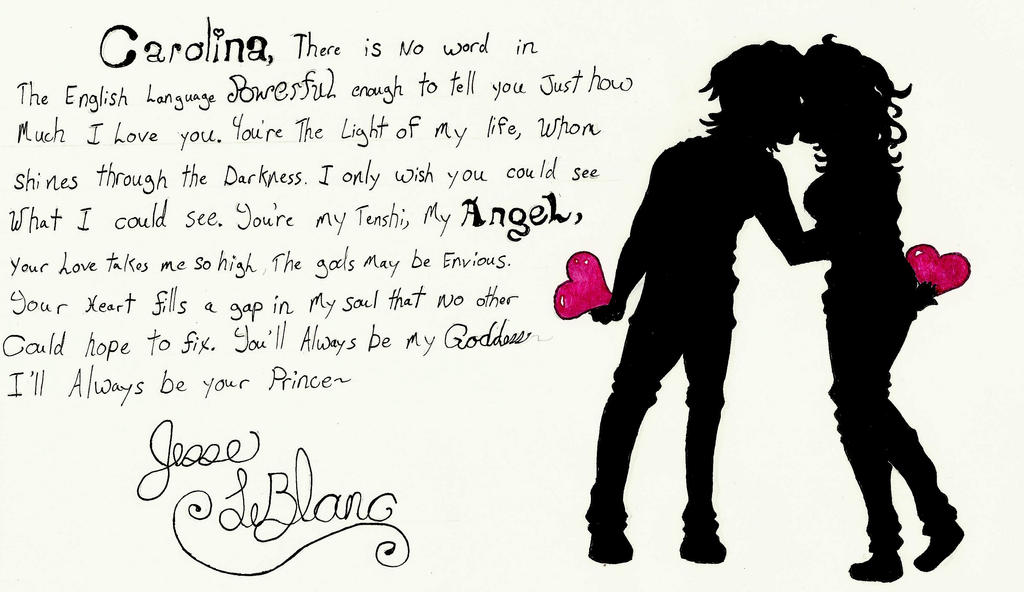 Carolina, There is No word in
The English Language Powerful enough to tell you Just how
Much I Love you. You're The Light of my life, Whom
shines through the Darkness. I only wish you could see
What I could see. You're my Tenshi, My Angel,
your Love takes me so high, The gods May be Envious.
Your Heart fills a gap in My soul that no other
Could hope to fix. You'll Always be my Goddess~
I'll Always be your Prince~
Jesse
LeBlanc